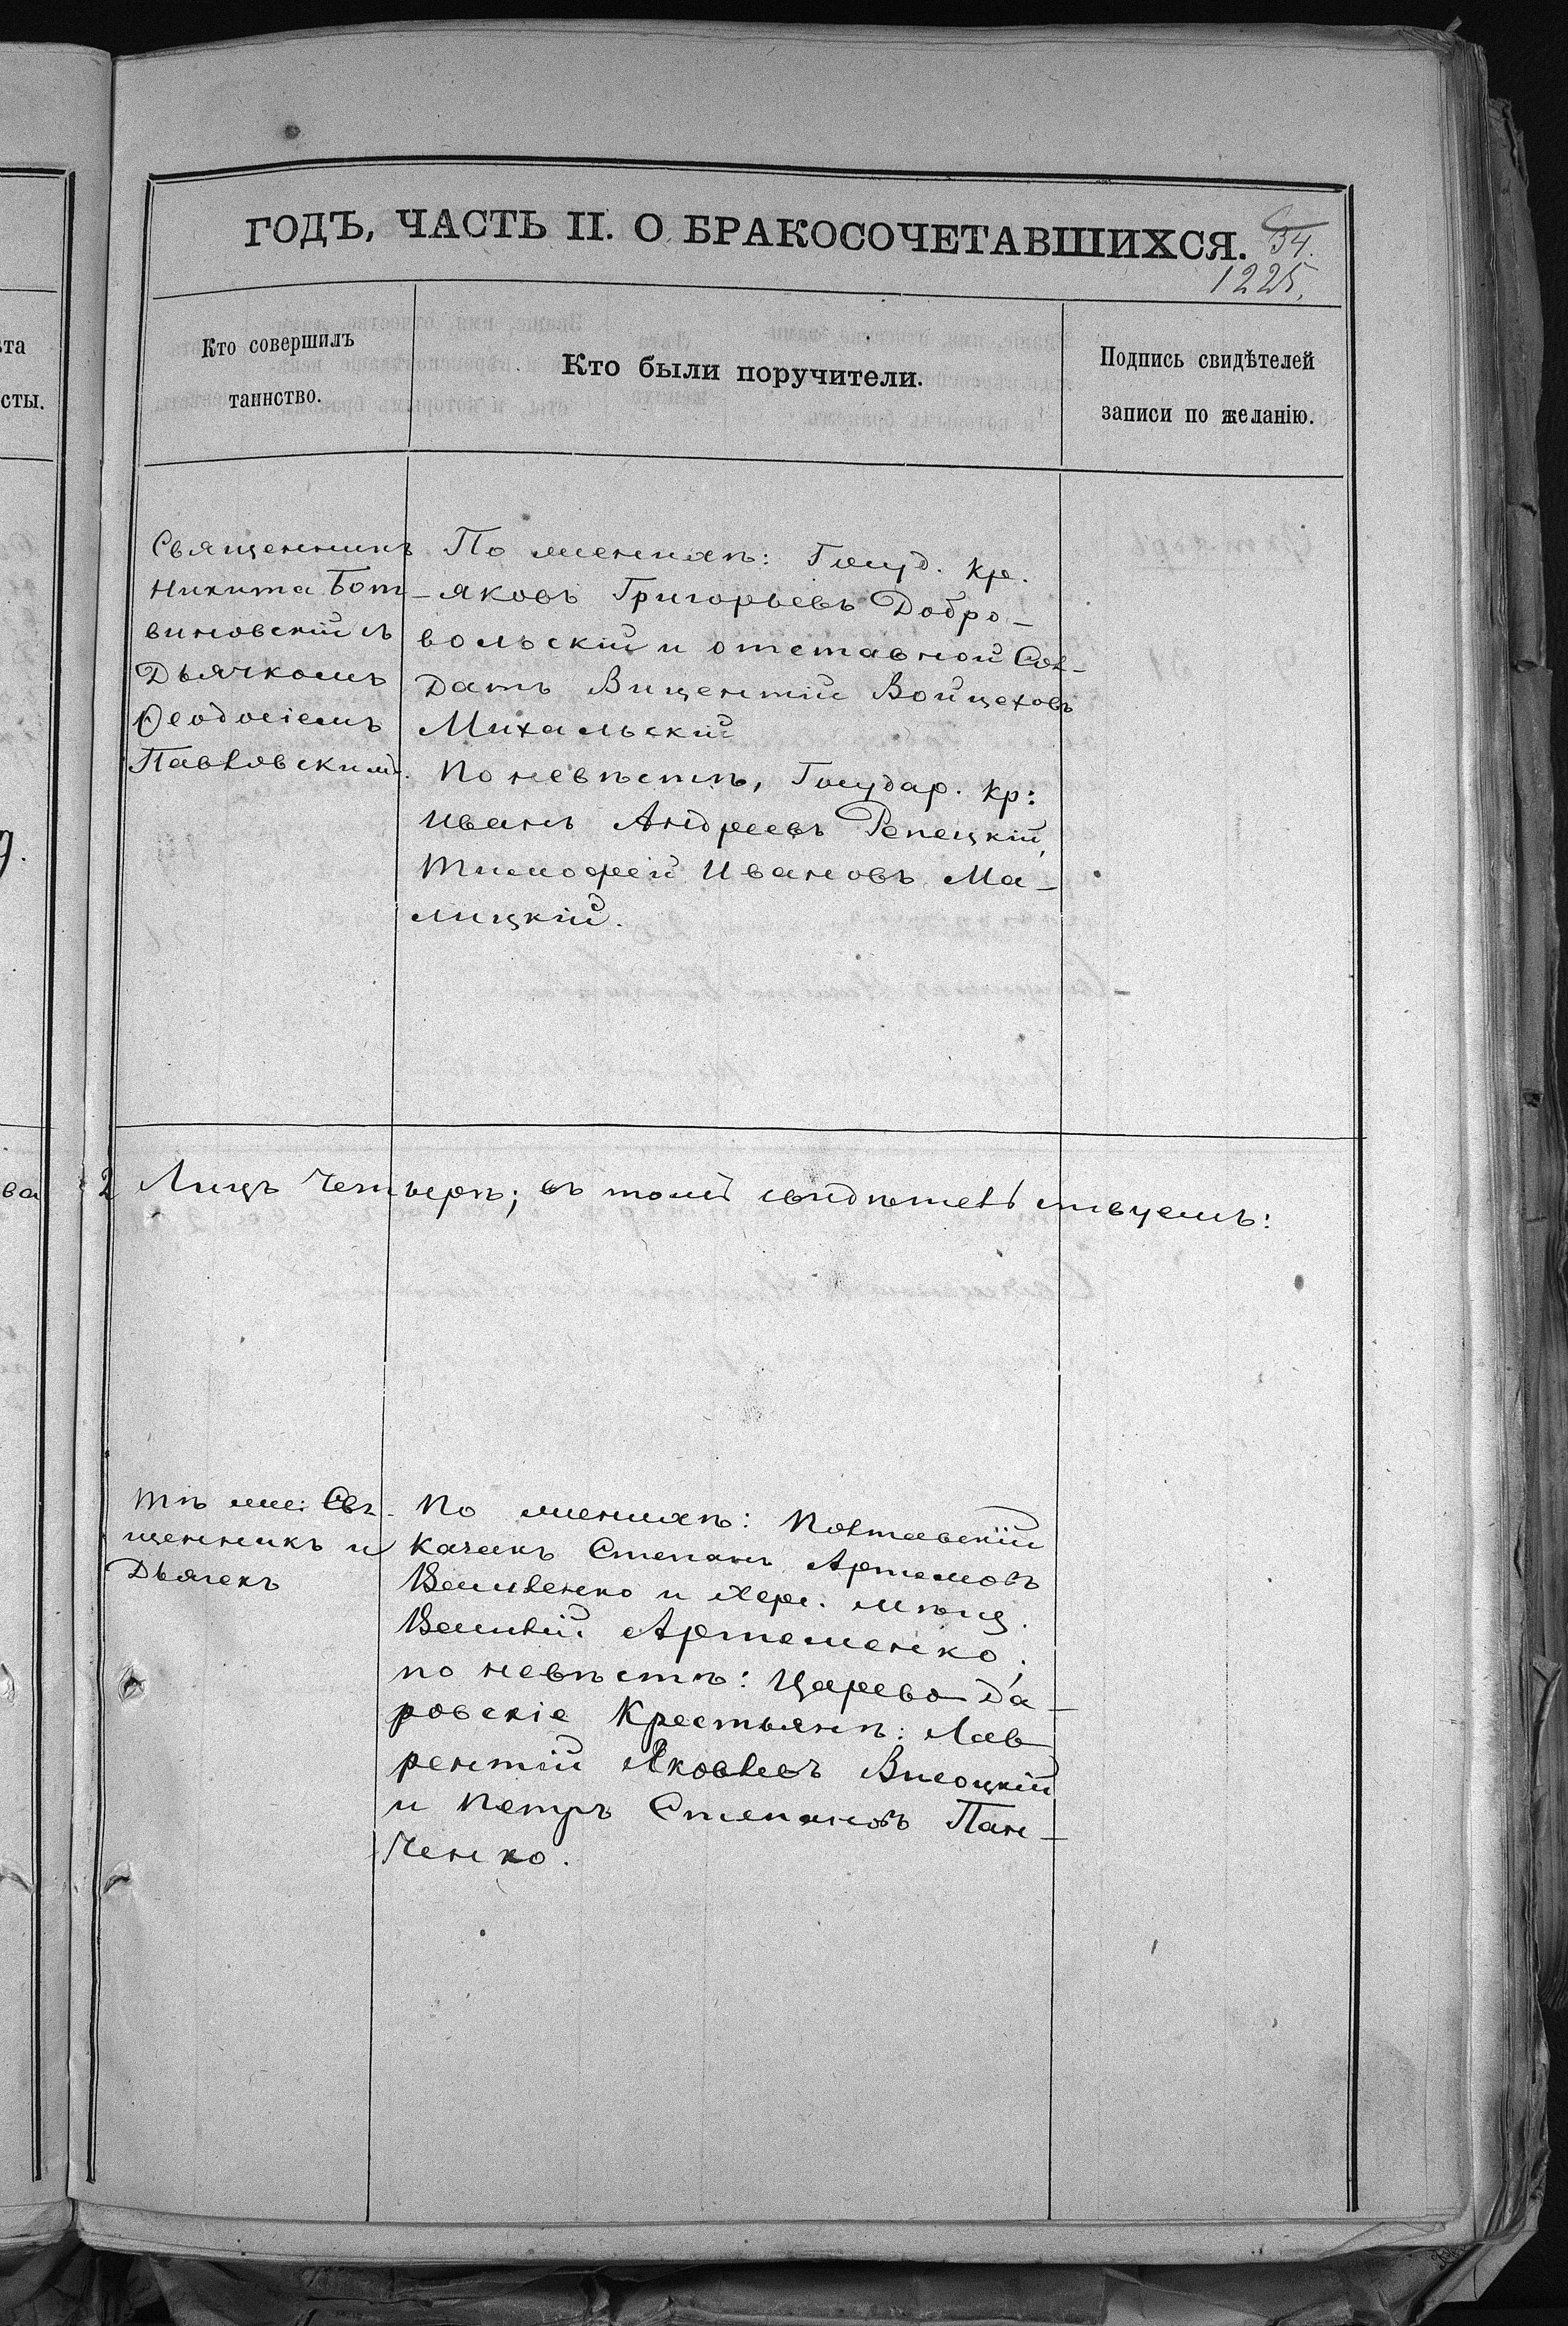 ГОДЪ, ЧАСТЬ II. О БРАКОСОЧЕТАВШИХСЯ.
54.
1225.
Кто совершилъ
таинство.
Кто были поручители.
Подпись свидѣтелей
записи по желанію.
ѣта
сты.
Священникъ
Никита Бот-
виновскій съ
Дьячкомъ
Ѳеодосіемъ
Павловскимъ.
По женихѣ: Госуд. кр.
Яковъ Григорьевъ Добро-
вольскій и отставной Сол-
датъ Вицентій Войцеховъ
Михальскій
По невѣстѣ, Государ. кр:
Иванъ Андреевъ Репецкій,
Тимофей Ивановъ Ма-
лицкій.
ва
2 Лицъ четыере; въ томъ свидѣтельствуемъ:
Тѣ же: Свя-
щенникъ и
Дьячекъ
По женихѣ: Полтавскій
Казакъ Степанъ Артемовъ
и Херс. мѣщ.
Артеменко;
по невѣстѣ: Царево да-
ровскіе Крестьяне: Лав
рентій Яковлевъ Висоцкій
и Петръ Степановъ Пан-
ченко.